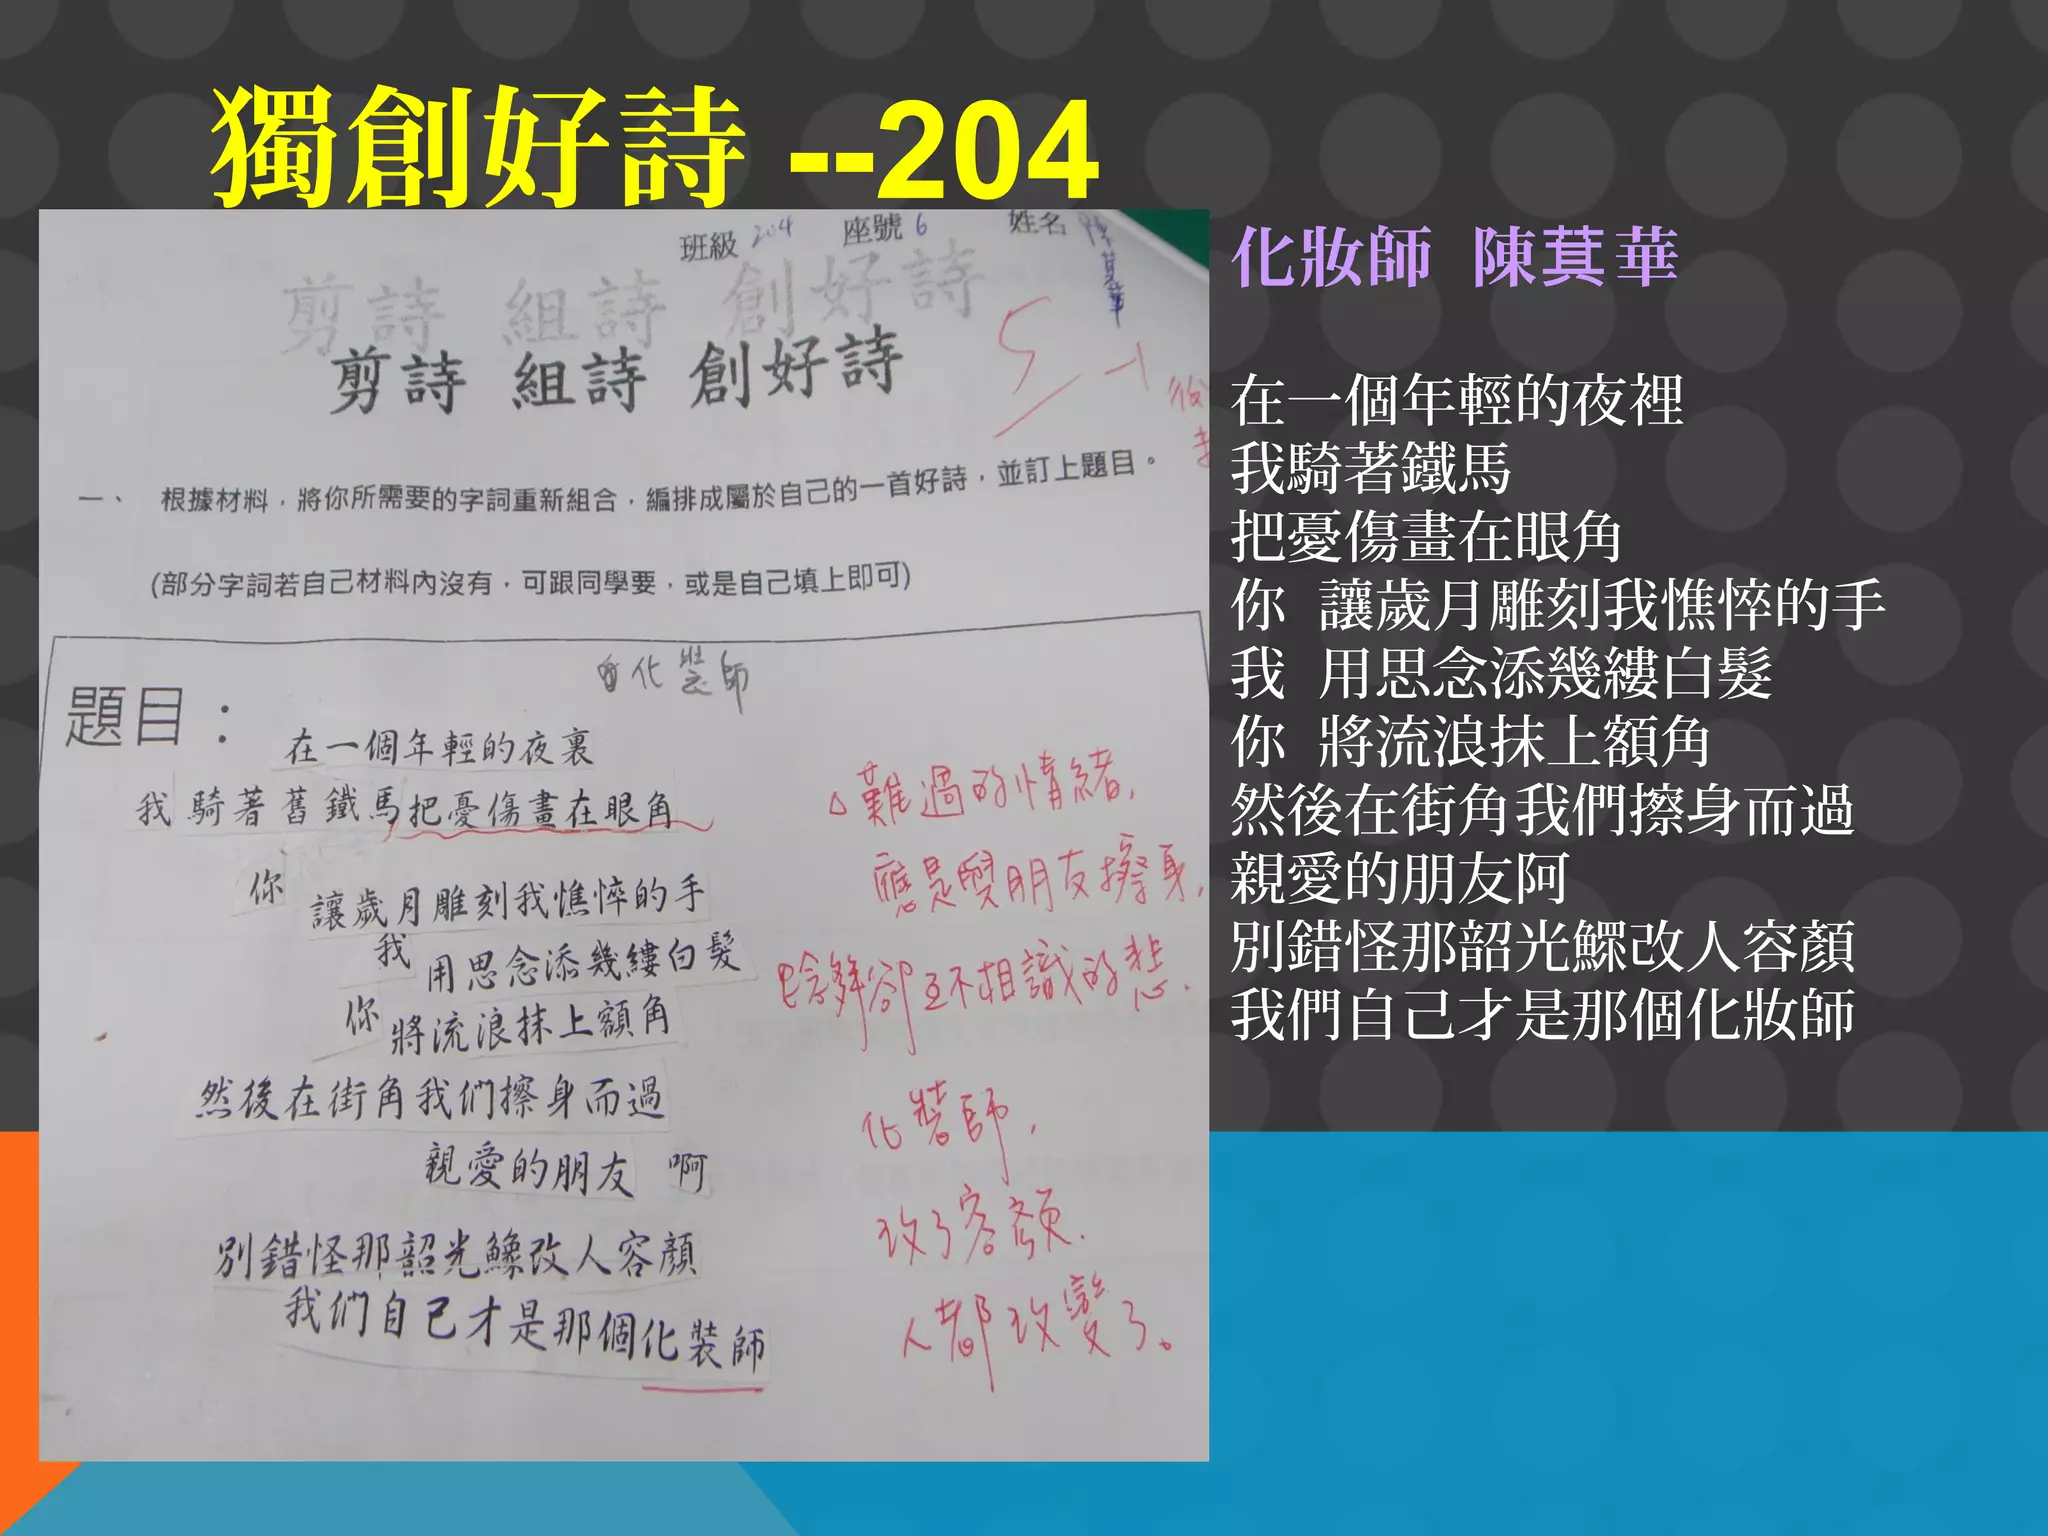 獨創好詩 --204
班級 204 座號 6 姓名 陳萁華
剪詩 組詩 創好詩
剪詩 組詩 創好詩
一、 根據材料，將你所需要的字詞重新組合，編排成屬於自己的一首好詩，並訂上題目。
(部分字詞若自己材料內沒有，可跟同學要，或是自己填上即可)
題目：
化裝師
在一個年輕的夜裏
我 騎著舊鐵馬把憂傷畫在眼角
你 讓歲月雕刻我憔悴的手
我 用思念添幾縷白髮
你 將流浪抹上額角
然後在街角我們擦身而過
親愛的朋友 啊
別錯怪那韶光鰥改人容顏
我們自己才是那個化裝師
難過的情緒，
應是與朋友擦身，
卻互不相識的悲.
化裝師，
改了容顏.
人都改變了。
化妝師 陳萁華
在一個年輕的夜裡
我騎著鐵馬
把憂傷畫在眼角
你 讓歲月雕刻我憔悴的手
我 用思念添幾縷白髮
你 將流浪抹上額角
然後在街角我們擦身而過
親愛的朋友阿
別錯怪那韶光鰥改人容顏
我們自己才是那個化妝師